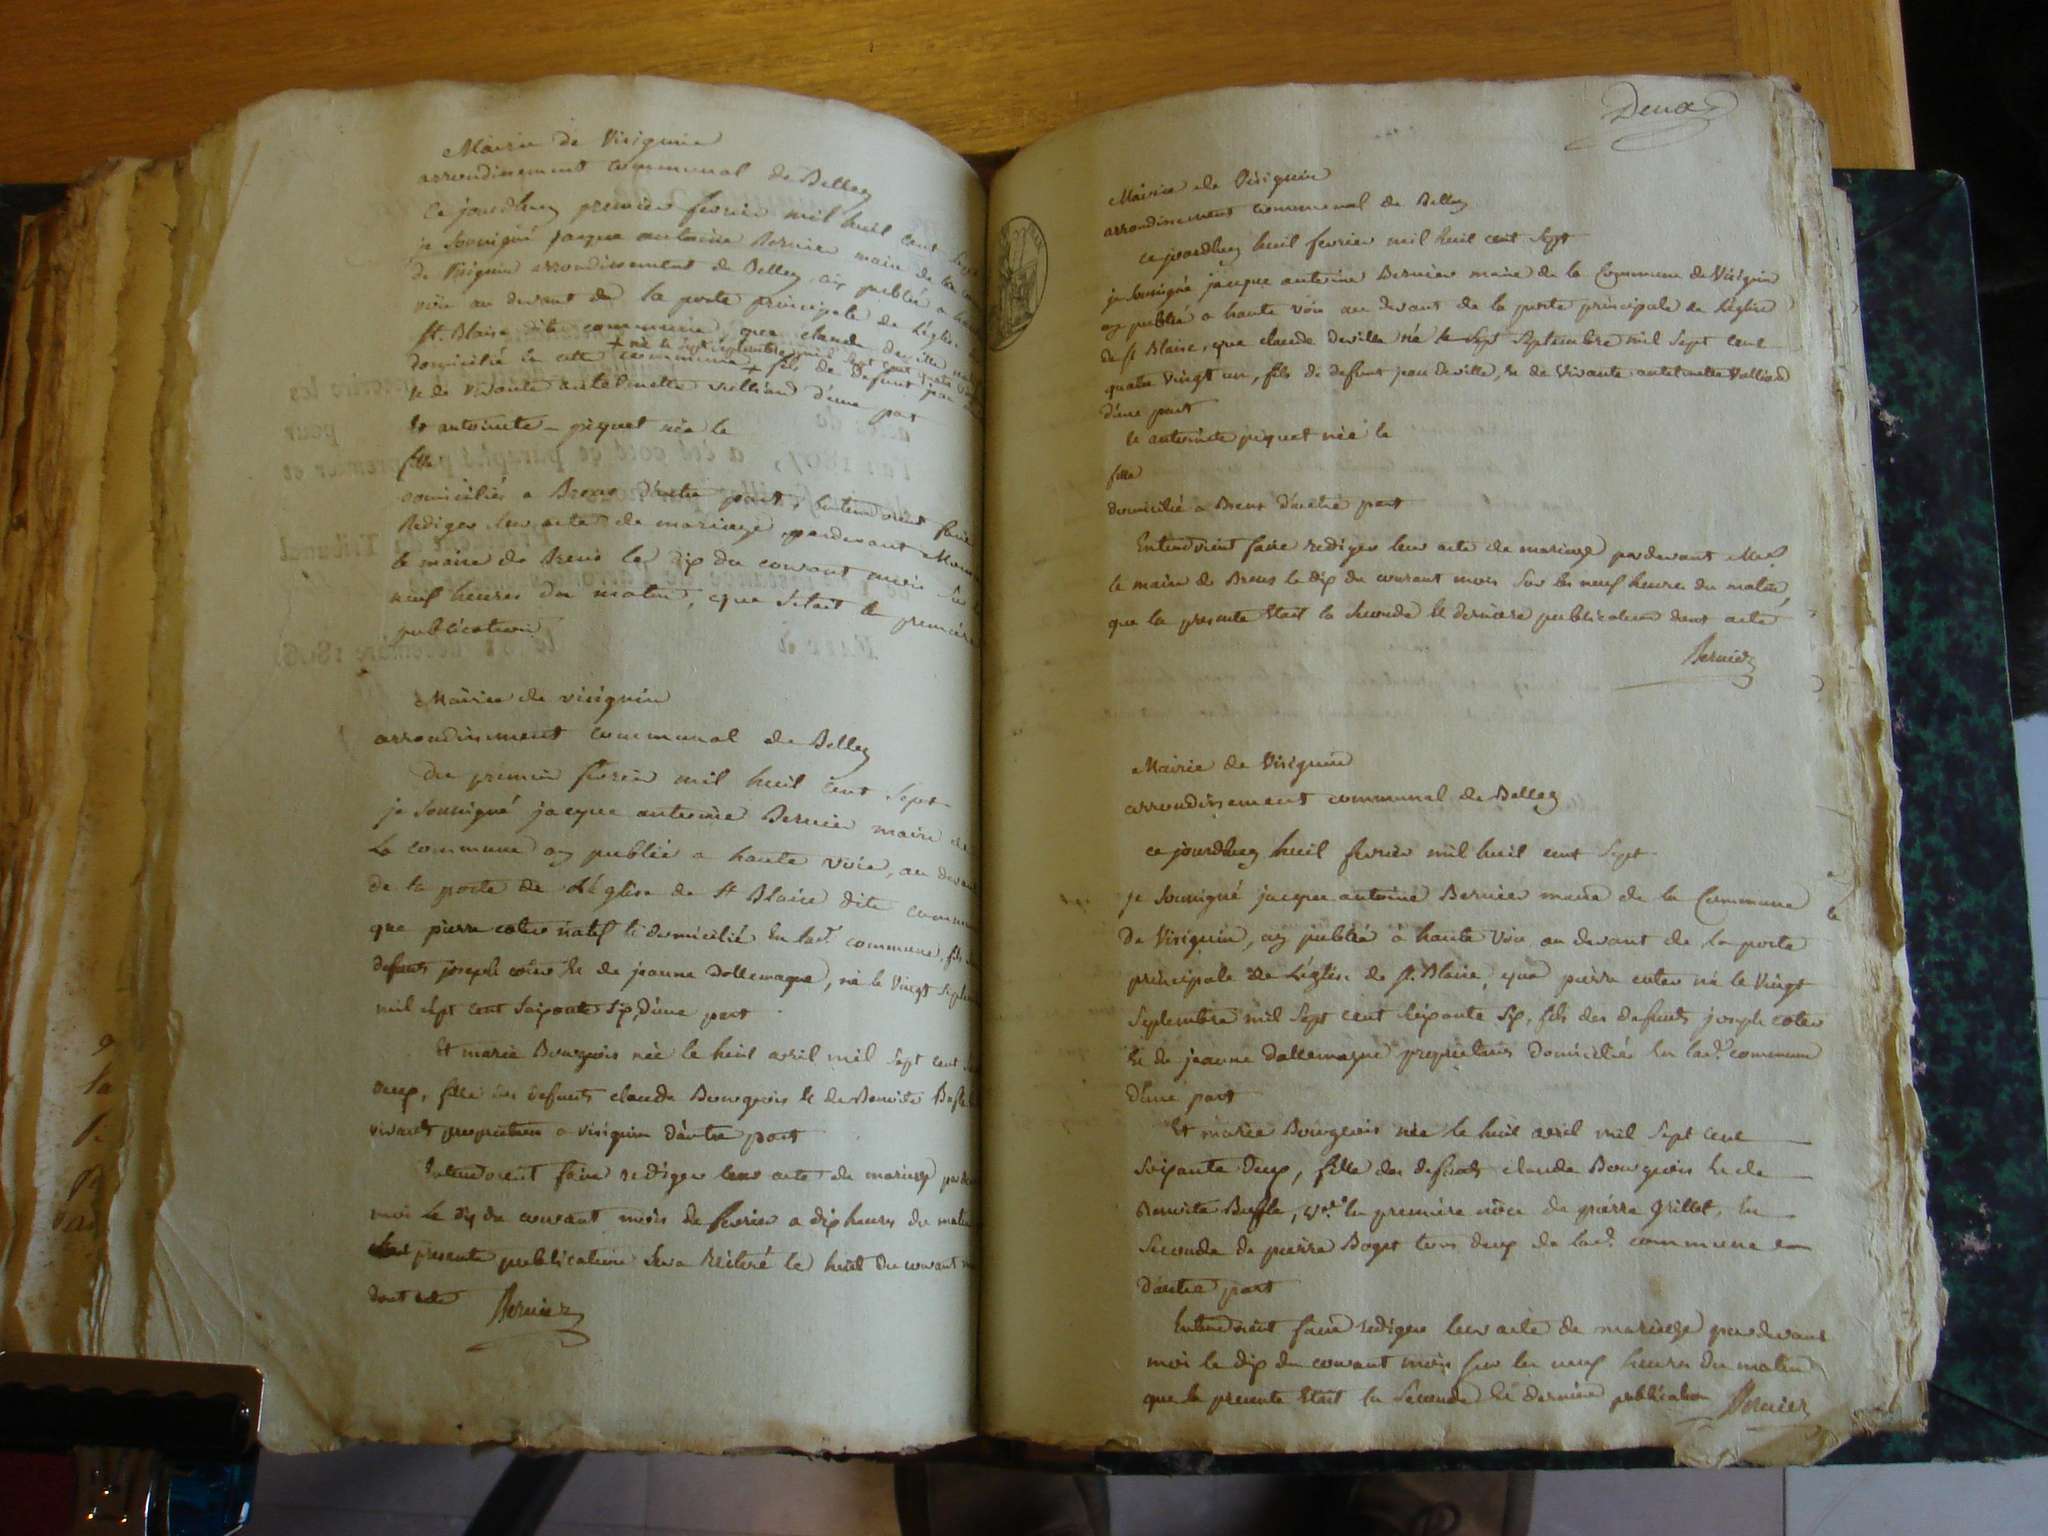 Mairie de Visignin
arrondissement communal de Belley
Ce jourdhuy premier fevrier mil huit cent Sept
je Soussigné jacque antoine Bernier maire de la
de Visignin arrondissement de Belley, ay publié a haute
voix au devant de la porte principale de l'église
St. Blaise dite commune que claude deville
+ né le sept septembre mil sept cent quatre vingt
domicilié en cette commune + fils de defunt jean
& de vivante antelmette vulliod d'une part
Et antoinette piquet née le
fille
domiciliés a Brens d'autre part, Entendoient faire
Rediger leur acte de mariage pardevant
le maire de Brens le dix du courant mois sur
neuf heures du matin, que s'etait la première
publication
Mairie de visignin
arrondissement communal de Belley
du premier fevrier mil huit cent Sept
je Soussigné jacque antoine Bernier maire de
la commune ay publié a haute voix, au devant
de la porte de L'église de St Blaise dite commune
que pierre coter natif & domicilié En lad.e commune, fils
defunts joseph coter & de jeanne Dallemagne, né le Vingt Septembre
mil sept cent Soixante Six, d'une part
Et marie Bourgeois née le huit avril mil Sept cent
deux, fille des defunts claude Bourgeois & de Benoite Buffle
vivants proprietaires a visignin d'autre part
Entendoient faire rediger leur acte de mariage par devant
moi le dix du courant mois de fevrier a dix heures du matin
presente publication sera Reitéré le huit du courant
dont acte Bernier
Deux
Mairie de Visignin
arrondissement communal de Belley
ce jourdhuy huit fevrier mil huit cent Sept
je Soussigné jacque antoine Bernier maire de la Commune de Visignin
ay publié a haute voix au devant de la porte principale de L'église
de St Blaise, que claude deville né le Sept Septembre mil Sept cent
quatre vingt un, fils de defunt jean deville, & de Vivante antelmette Vulliod
d'une part
& antoinette piquet née le
fille
domicilié a Brens d'autre part
Entendoient faire rediger leur acte de mariage pardevant Mr
le maire de Brens le dix du courant mois Sur les neuf heures du matin,
que la presente Etait la Seconde & derniere publication dont acte
Bernier
Mairie de Visignin
arrondissement communal de Belley
ce jourdhuy huit fevrier mil huit cent Sept
je Soussigné jacque antoine Bernier maire de la Commune
de Visignin, ay publié à haute Voix au devant de la porte
principale de L'église de St. Blaise, que pierre coter né le Vingt
Septembre mil Sept cent Soixante Six, fils des defunts joseph coter
& de jeanne dallemagne proprietaires domiciliés En lad.e commune
d'une part
Et marie Bourgeois née le huit avril mil Sept cent
Soixante deux, fille des defunts claude Bourgeois & de
Benoite Buffle, v.ve En première nôce de pierre Grillet, En
Seconde de pierre Boget tous deux de lad.e commune
d'autre part
Entendoient faire rediger leur acte de mariage pardevant
moi le dix du courant mois sur les neuf heures du matin
que la presente Etait la Seconde & dernière publication Bernier